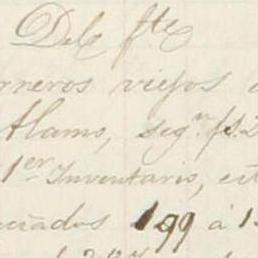 Del fte
rneros viejos
Alamo, segn fs. 2
1er Inventario, est
ciados 199 á 1